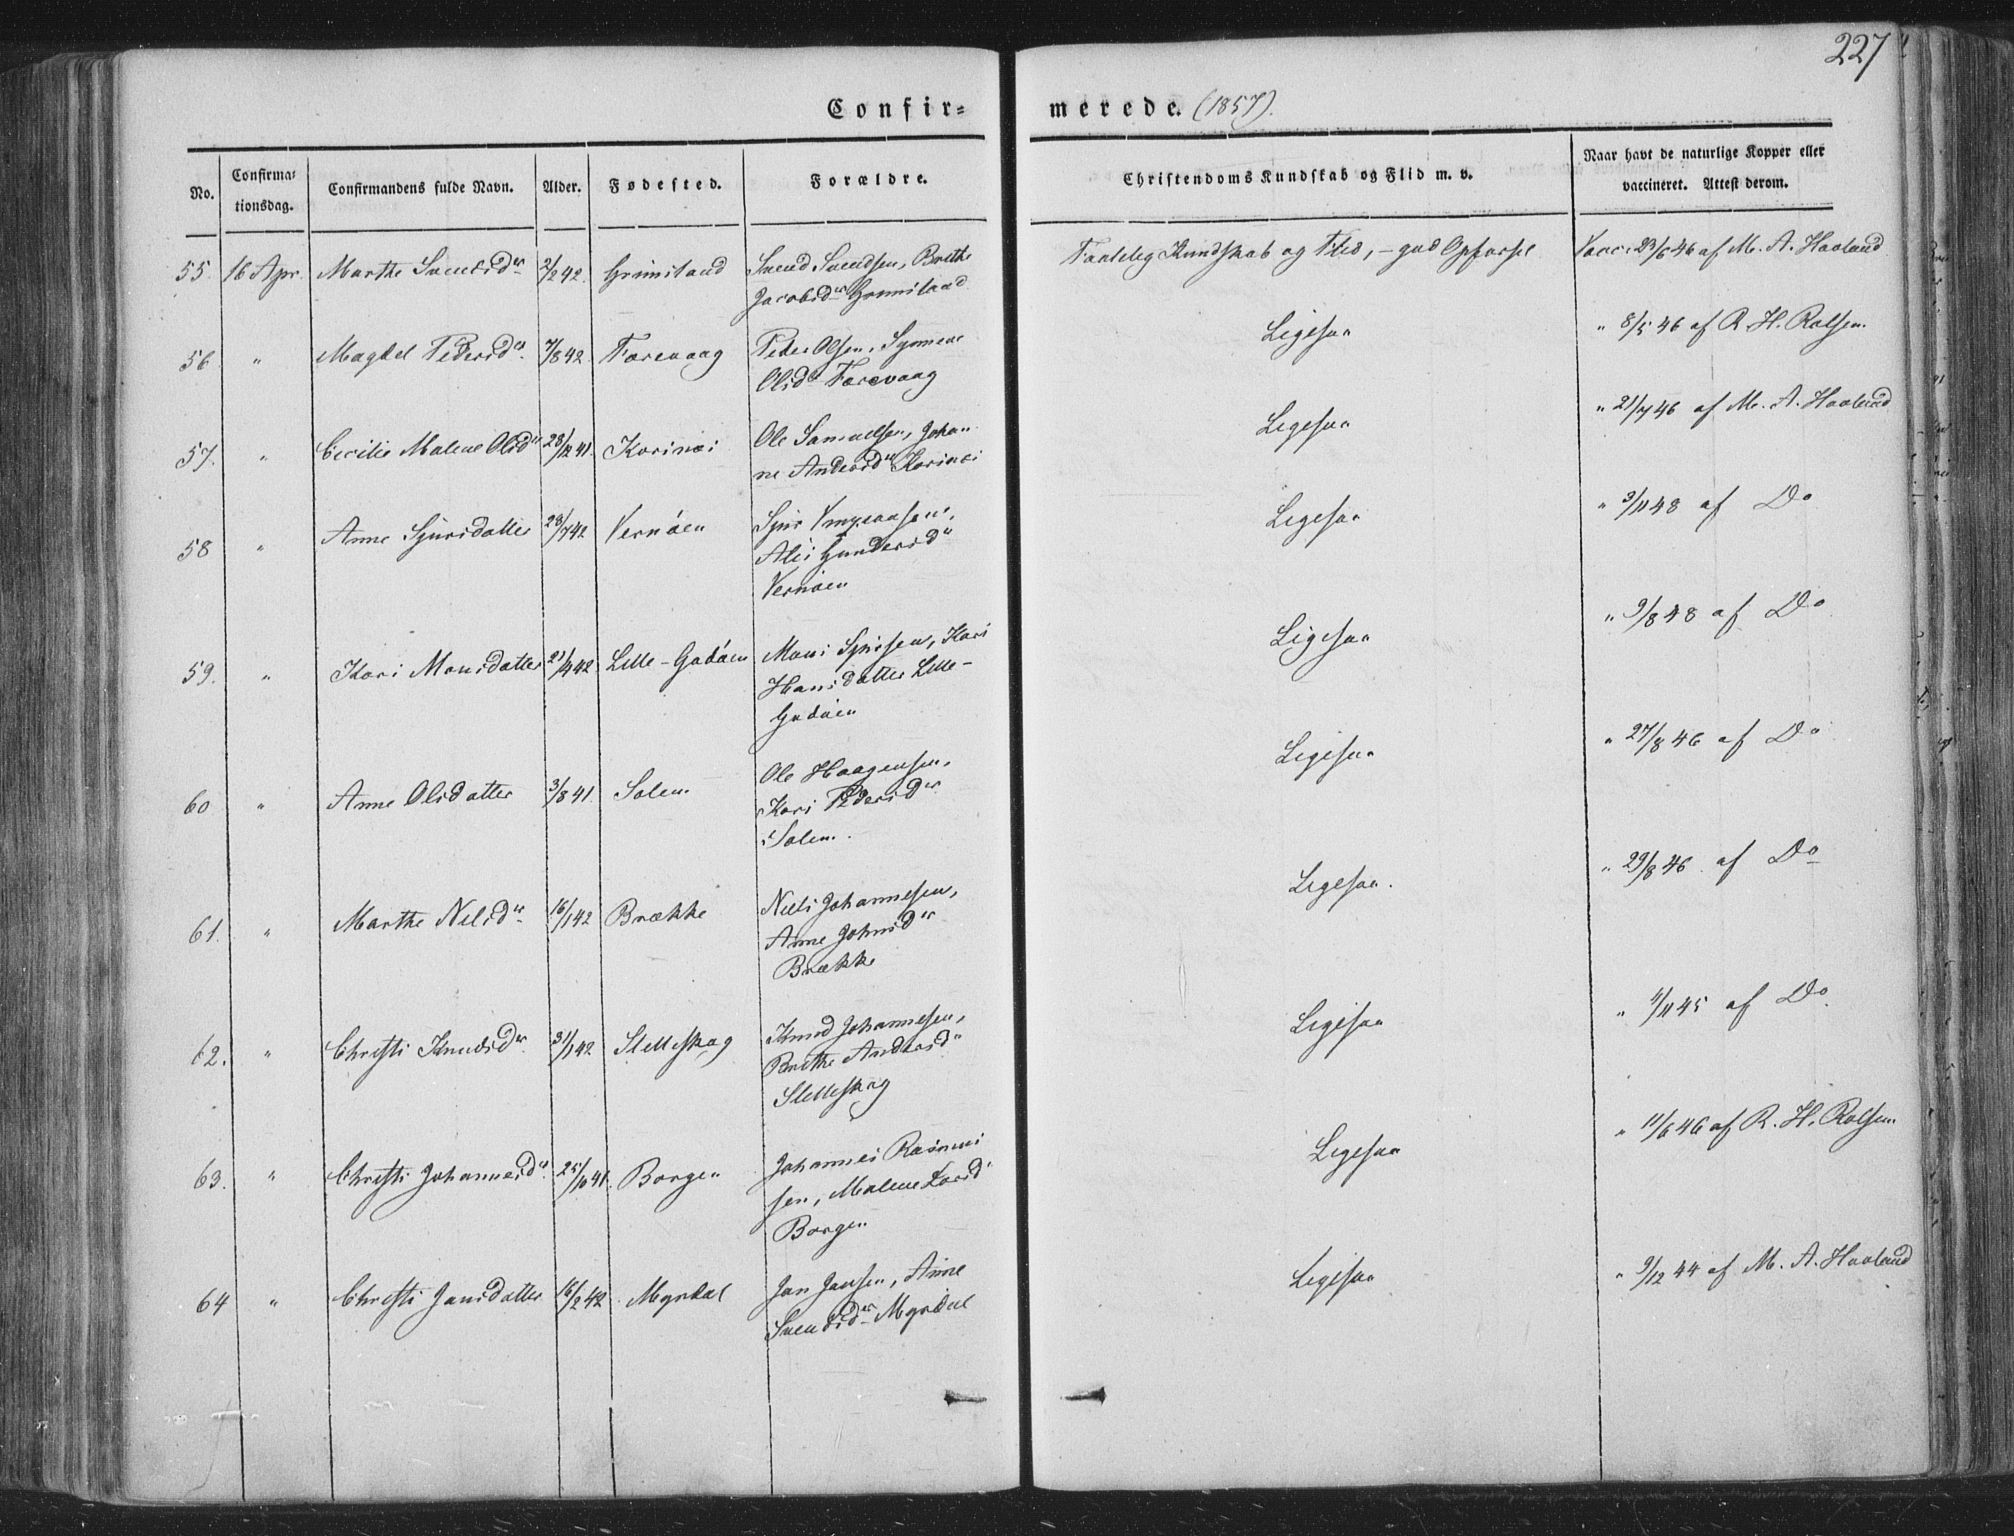 227
Confir=
merede. (1857).
No.
Confirma=
tionsdag.
Confirmandens fulde Navn.
Alder.
Fødested.
Forældre.
Christendoms Kundskab og Flid m. v.
Naar havt de naturlige Kopper eller
vaccineret. Attest derom.
55. 16 Apr. Marthe Svendsdr 2/2 42. Grimstand Svend Svendsen, Brithe
Jacobsdr Grimstand
Taalelig Kundskab og Flid, – god Opførsel Vacc. 23/6 46 af M. A. Haaland
56 " Magdel Pedersdr 7/8 42 Farevaag Peder Olsen,
Olsdr Farevaag
Ligesaa " 8/5 46 af R. H. Rolfsen.
57. " Cecilie Malene Olsdr 28/12 41. Ole Samuelsen, Johan
ne Andersdr
Ligesaa " 21/7 46 af M. A. Haaland
58 " Anne Sjursdatter 28/7 42 Vernøen Sjur
Gundersdr
Vernøen
Ligesaa " 3/11 48 af Do
59. " Kari Monsdatter 21/4 42 Lille-Godøen Mons Sjursen, Kari
Hansdatter Lille-
Godøen
Ligesaa " 9/8 48 af Do
60 " Anne Olsdatter 3/8 41 Solem Ole Haagensen,
Kari Pedersdr
Solem.
Ligesaa " 27/8 46 af Do
61. " Marthe Nilsdr 16/1 42 Brække Niels Johannesen,
Anne Johnsdr
Brække
Ligesaa. " 29/8 46 af Do
62. " Christi Knudsdr 31/1 42 Stelleskag Knud Johannesen,
Brithe Andersdr
Stelleskag
Ligesaa " 1/11 45 af Do
63. " Christi Johannesdr 25/10 41. Borgen Johannes Rasmus
sen, Malene Larsdr
Borgen
Ligesaa " 11/6 46 af R. H. Rolfsen
64 " Christi Jansdatter 16/2 42 Myrdal Jan Jansen, Anne
Svendsdr Myrdal
Ligesaa " 9/12 44 af M. A. Haaland